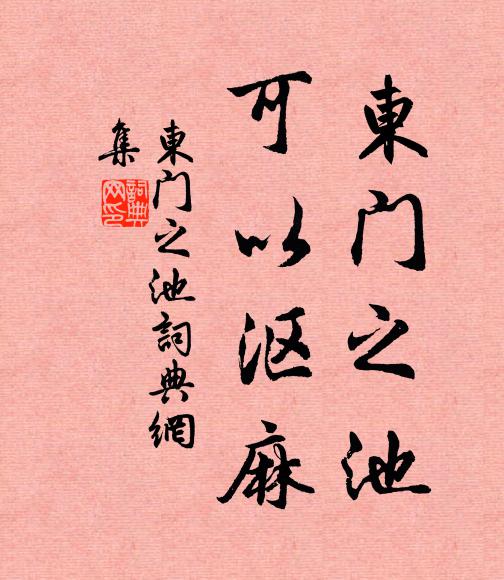 東门之池
可以沤麻
東门之池詞典網
集
詞典
网印